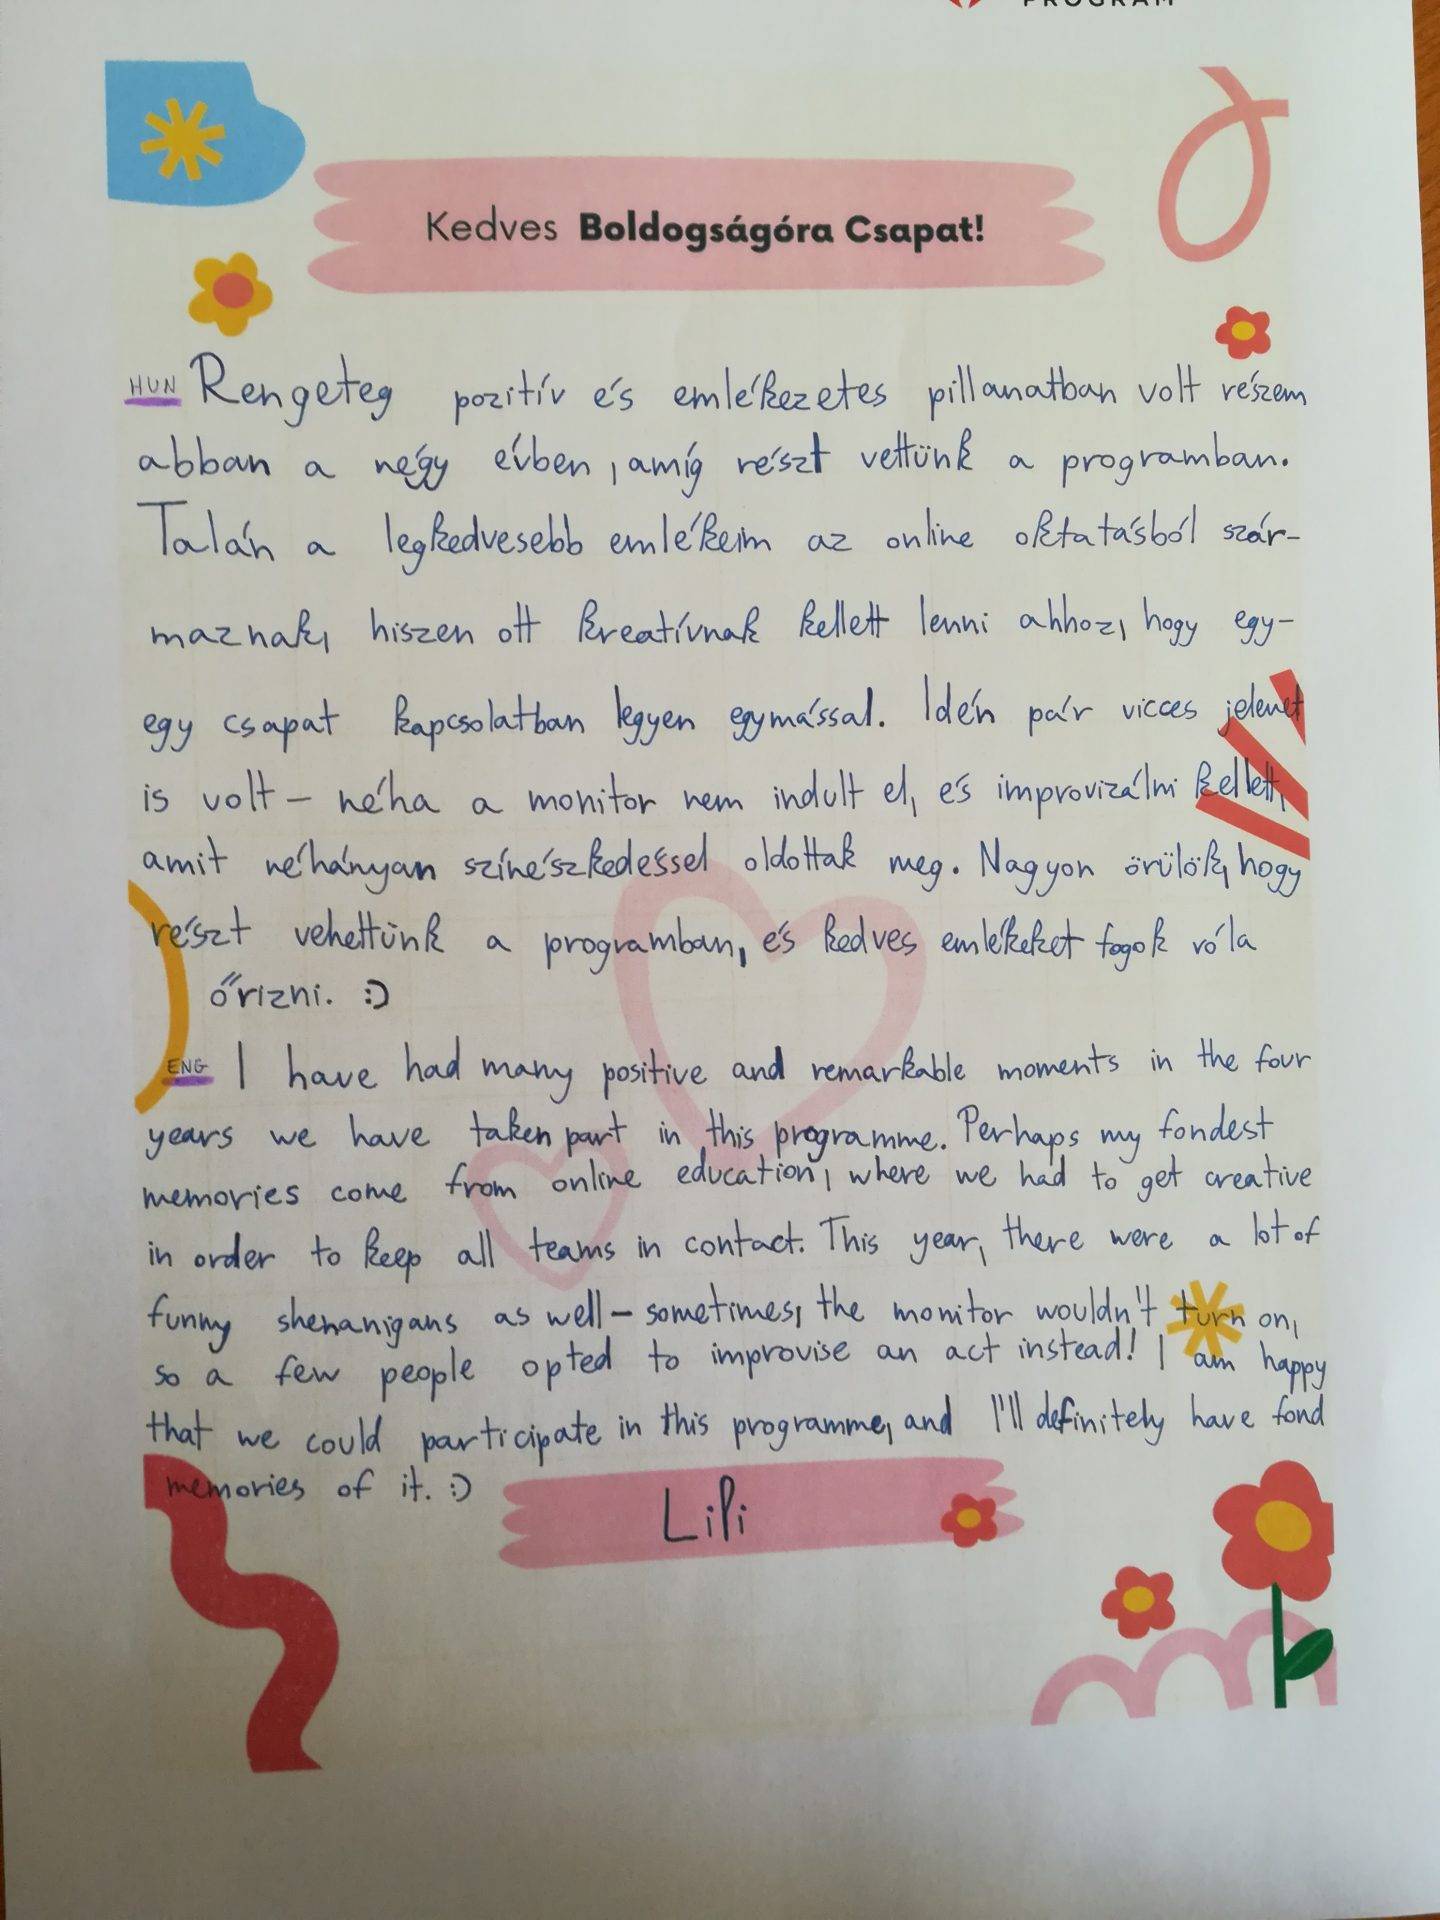 PROGRAM
Kedves Boldogságóra Csapat!
HUN Rengeteg pozitív és emlékezetes pillanatban volt részem
abban a négy évben, amíg részt vettünk a programban.
Talán a legkedvesebb emlékeim az online oktatásból szár-
maznak, hiszen ott kreatívnak kellett lenni ahhoz, hogy egy-
egy csapat kapcsolatban legyen egymással. Idén pár vicces jelenet
is volt – néha a monitor nem indult el, és improvizálni kellett,
amit néhányan színészkedéssel oldottak meg. Nagyon örülök, hogy
részt vehettünk a programban, és kedves emlékeket fogok róla
őrizni. :)
ENG I have had many positive and remarkable moments in the four
years we have taken part in this programme. Perhaps my fondest
memories come from online education, where we had to get creative
in order to keep all teams in contact. This year, there were a lot of
funny shenanigans as well – sometimes, the monitor wouldn't turn on,
so a few people opted to improvise an act instead! I am happy
that we could participate in this programme, and I'll definitely have fond
memories of it. :)
Lili